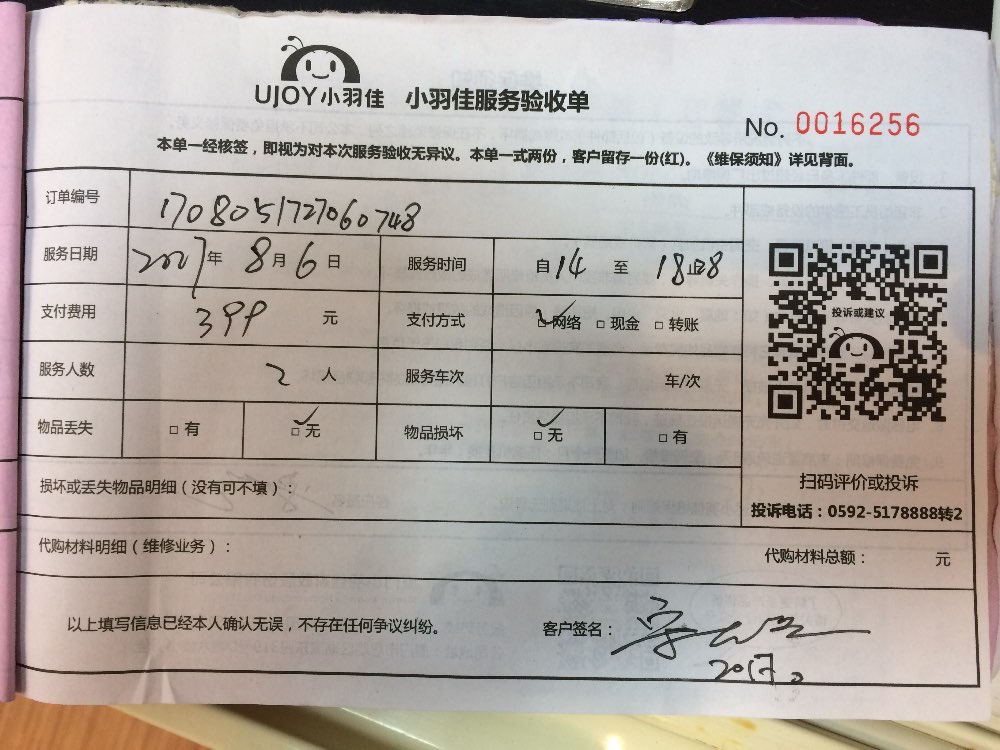 UJOY小羽佳 小羽佳服务验收单
No. 0016256
本单一经核签，即视为对本次服务验收无异议。本单一式两份，客户留存一份(红)。《维保须知》详见背面。
订单编号 1708051727060748
服务日期 2017年 8月 6日 服务时间 自14 至 18
支付费用 399 元 支付方式 □网络 □现金 □转账
投诉或建议
服务人数 2 人 服务车次 车/次
物品丢失 □有 □无 物品损坏 □无 □有
扫码评价或投诉
损坏或丢失物品明细（没有可不填）:
投诉电话：0592-5178888转2
代购材料明细（维修业务）: 代购材料总额： 元
以上填写信息已经本人确认无误，不存在任何争议纠纷。 客户签名：